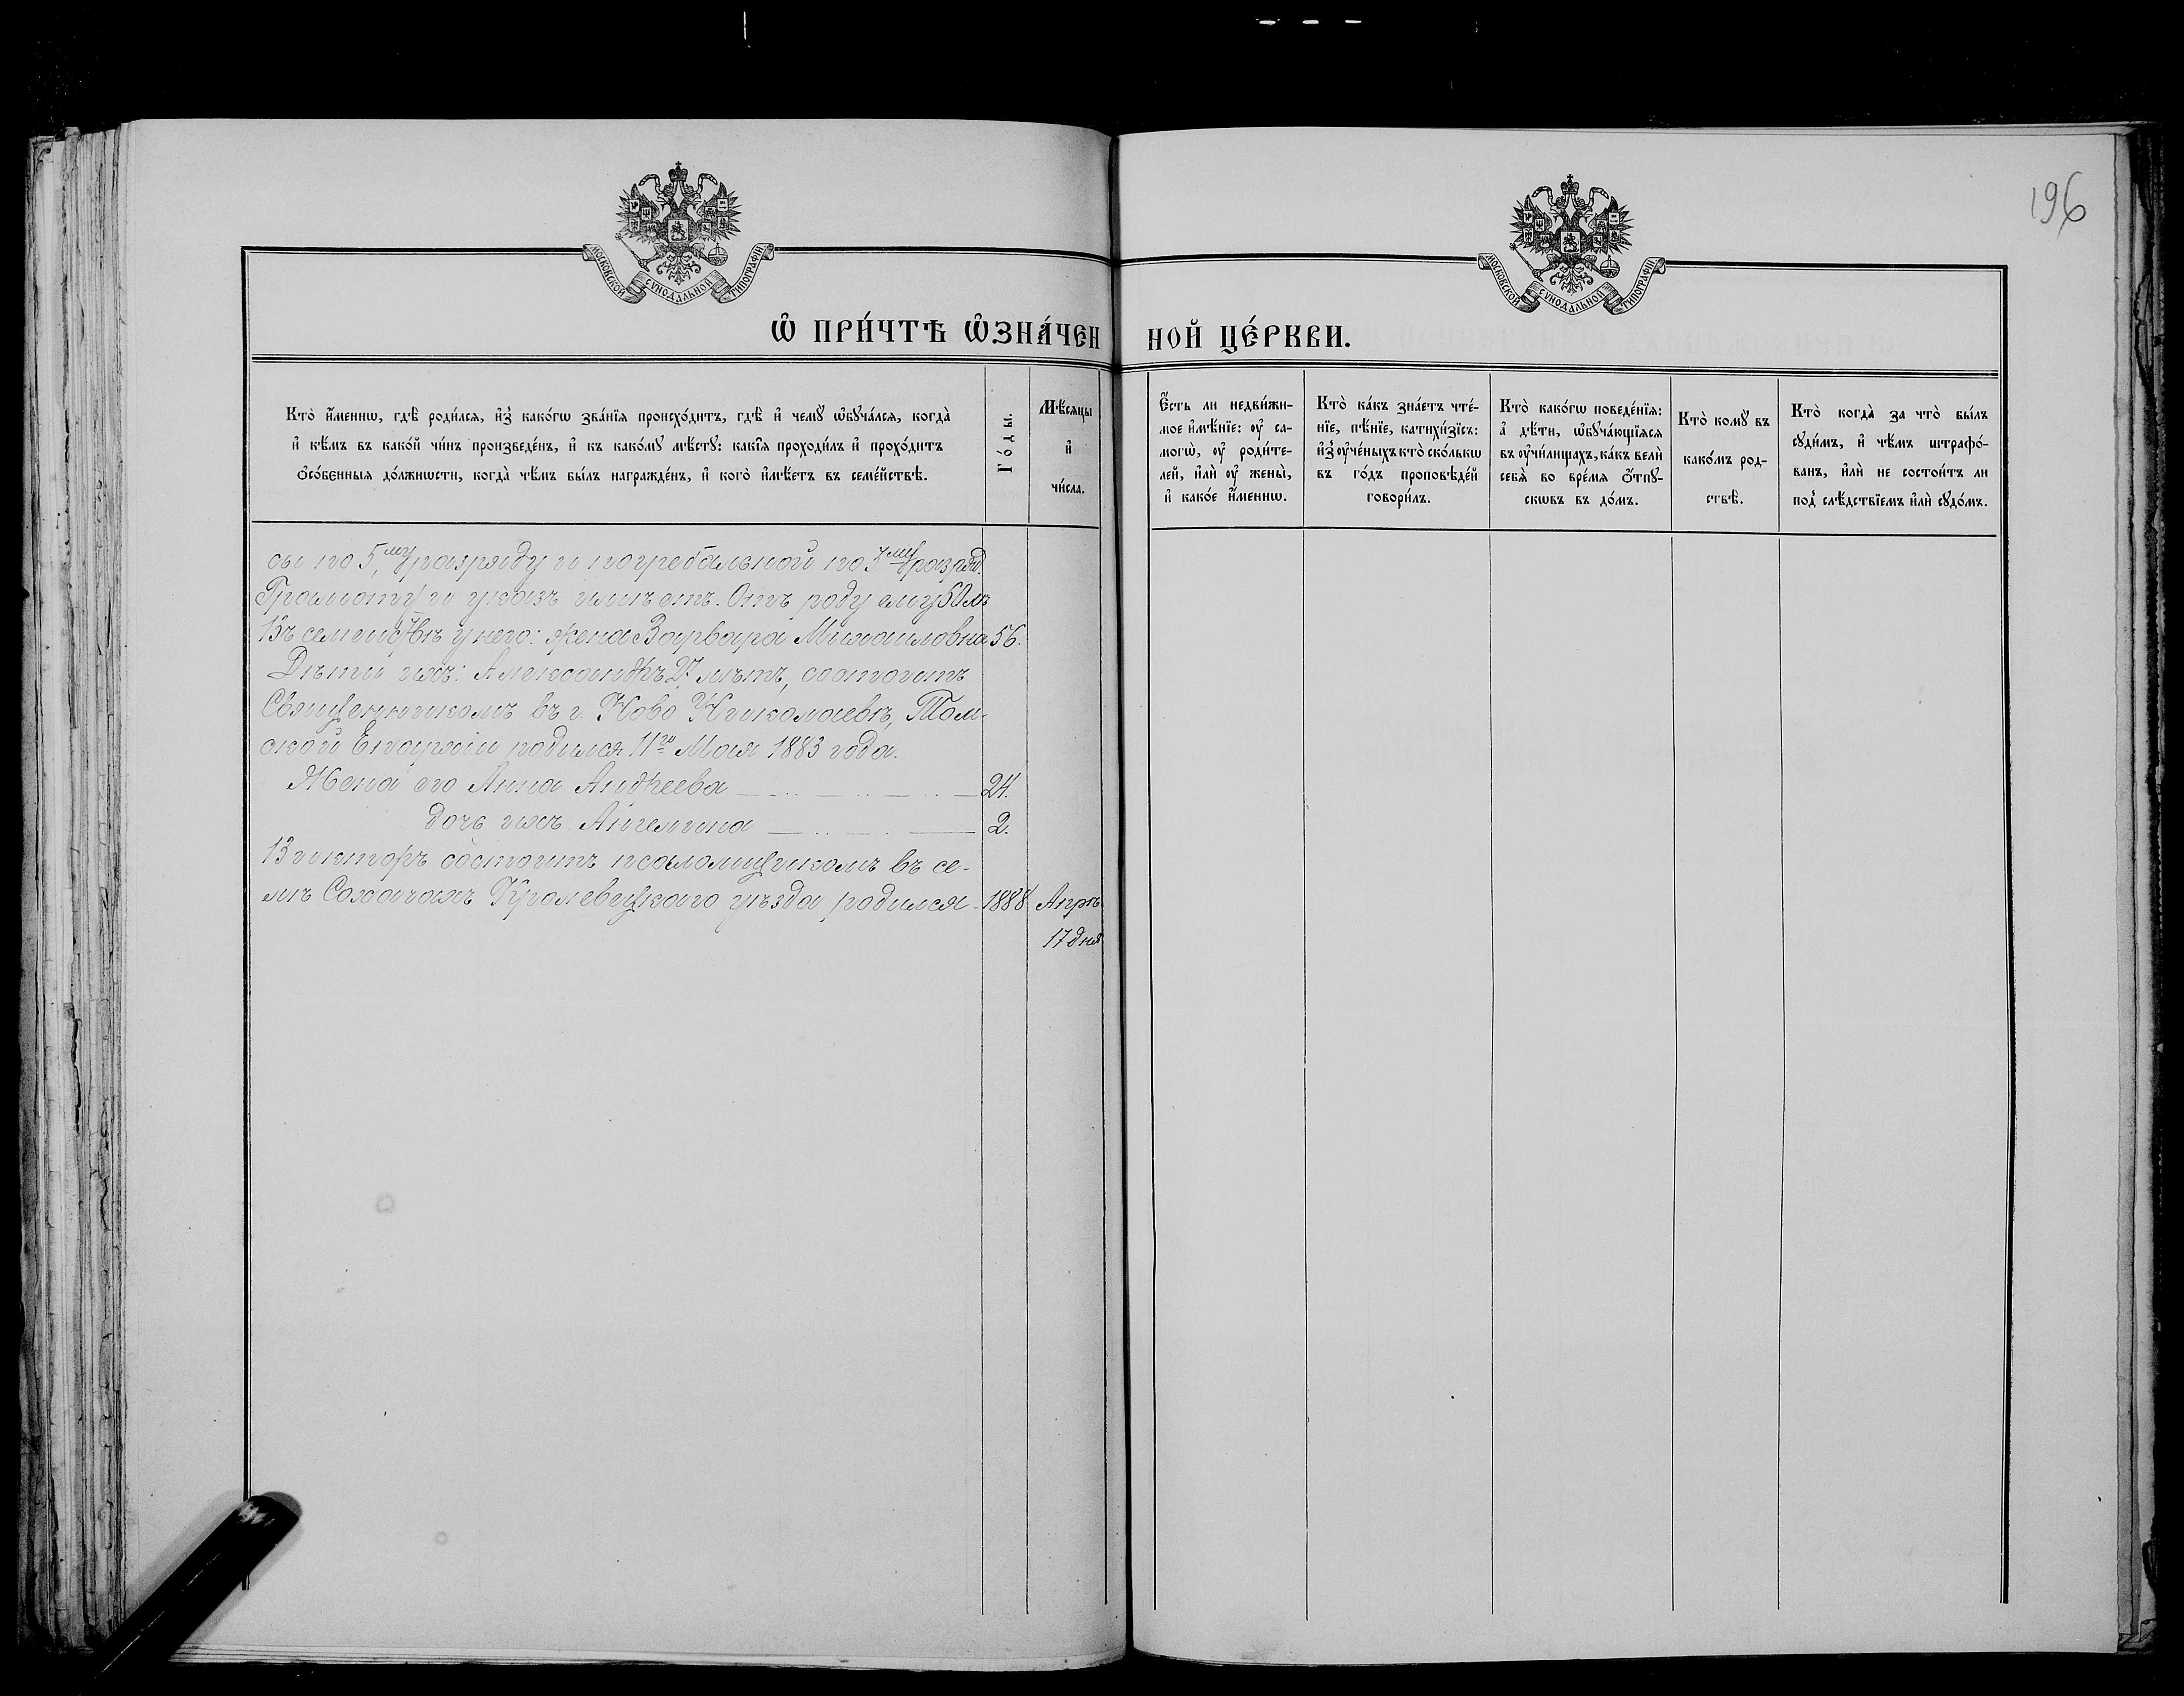 196
МОСКОВСКОЙ СУНОДАЛЬНОЙ ТИПОГРАФІИ
МОСКОВСКОЙ СУНОДАЛЬНОЙ ТИПОГРАФІИ
Ѡ҆ ПРИ́ЧТѢ Ѡ҆ЗНА́ЧЕННОЙ ЦЕ́РКВИ.
Кто̀ и҆́меннѡ, гдѣ̀ роди́лсѧ, и҆з̾ како́гѡ зва́нїѧ происхо́дитъ, гдѣ̀ и҆ чемꙋ̀ ѡ҆бꙋча́лсѧ, когда̀
и҆ кѣ́мъ въ како́й чи́нъ произведе́нъ, и҆ къ како́мꙋ мѣ́стꙋ: какі̑ѧ проходи́лъ и҆ прохо́дитъ
ѻ҆со́бенныѧ до́лжнѡсти, когда̀ чѣ́мъ бы́лъ награжде́нъ, и҆ кого̀ и҆мѣ́етъ въ семе́йствѣ.
Го́ды.
Мѣ́сѧцы
и҆
чи́сла.
Є҆́сть ли недви́жи-
мое и҆мѣ́нїе: ᲂу҆ са-
могѡ̀, ᲂу҆ роди́те-
лей, и҆лѝ ᲂу҆ жены̀,
и҆ како́е и҆́меннѡ.
Кто̀ ка́къ зна́етъ чте́-
нїе, пѣ́нїе, катихи́зїсъ:
и҆з̾ ᲂу҆че́ныхъ кто̀ ско́лькѡ
въ го́дъ проповѣ́дей
говори́лъ.
Кто̀ како́гѡ поведе́нїѧ:
а҆ дѣ́ти, ѡ҆бꙋча́ющїѧсѧ
въ ᲂу҆чи́лищахъ, ка́къ велѝ
себѧ̀ во вре́мѧ ѻ҆́тпꙋ-
скѡвъ въ до́мъ.
Кто̀ комꙋ̀ въ
како́мъ род-
ствѣ̀.
Кто̀ когда̀ за что̀ бы́лъ
сꙋди́мъ, и҆ чѣ́мъ штрафо́-
ванъ, и҆лѝ не состои́тъ ли
под̾ слѣ́дствїемъ и҆лѝ сꙋдо́мъ.
сы по 5му разряду и погребальной по 3му разряд.
Грамоту и указъ имѣетъ. Отъ роду ему 60 л.
Въ семействѣ у него: жена Варвара Михаиловна 56.
Дѣти ихъ: Александръ 27 лѣтъ, состоитъ
Священникомъ въ г. Ново Николаевкѣ, Том-
ской Епархіи родился 11го Мая 1883 года.
Жена его Анна Андреева 24.
дочь ихъ Ангелина 2.
Викторъ состоитъ псаломщикомъ въ се-
лѣ Сохачахъ Кролевецкаго уѣзда родился 1888 Апрѣ
17 дня